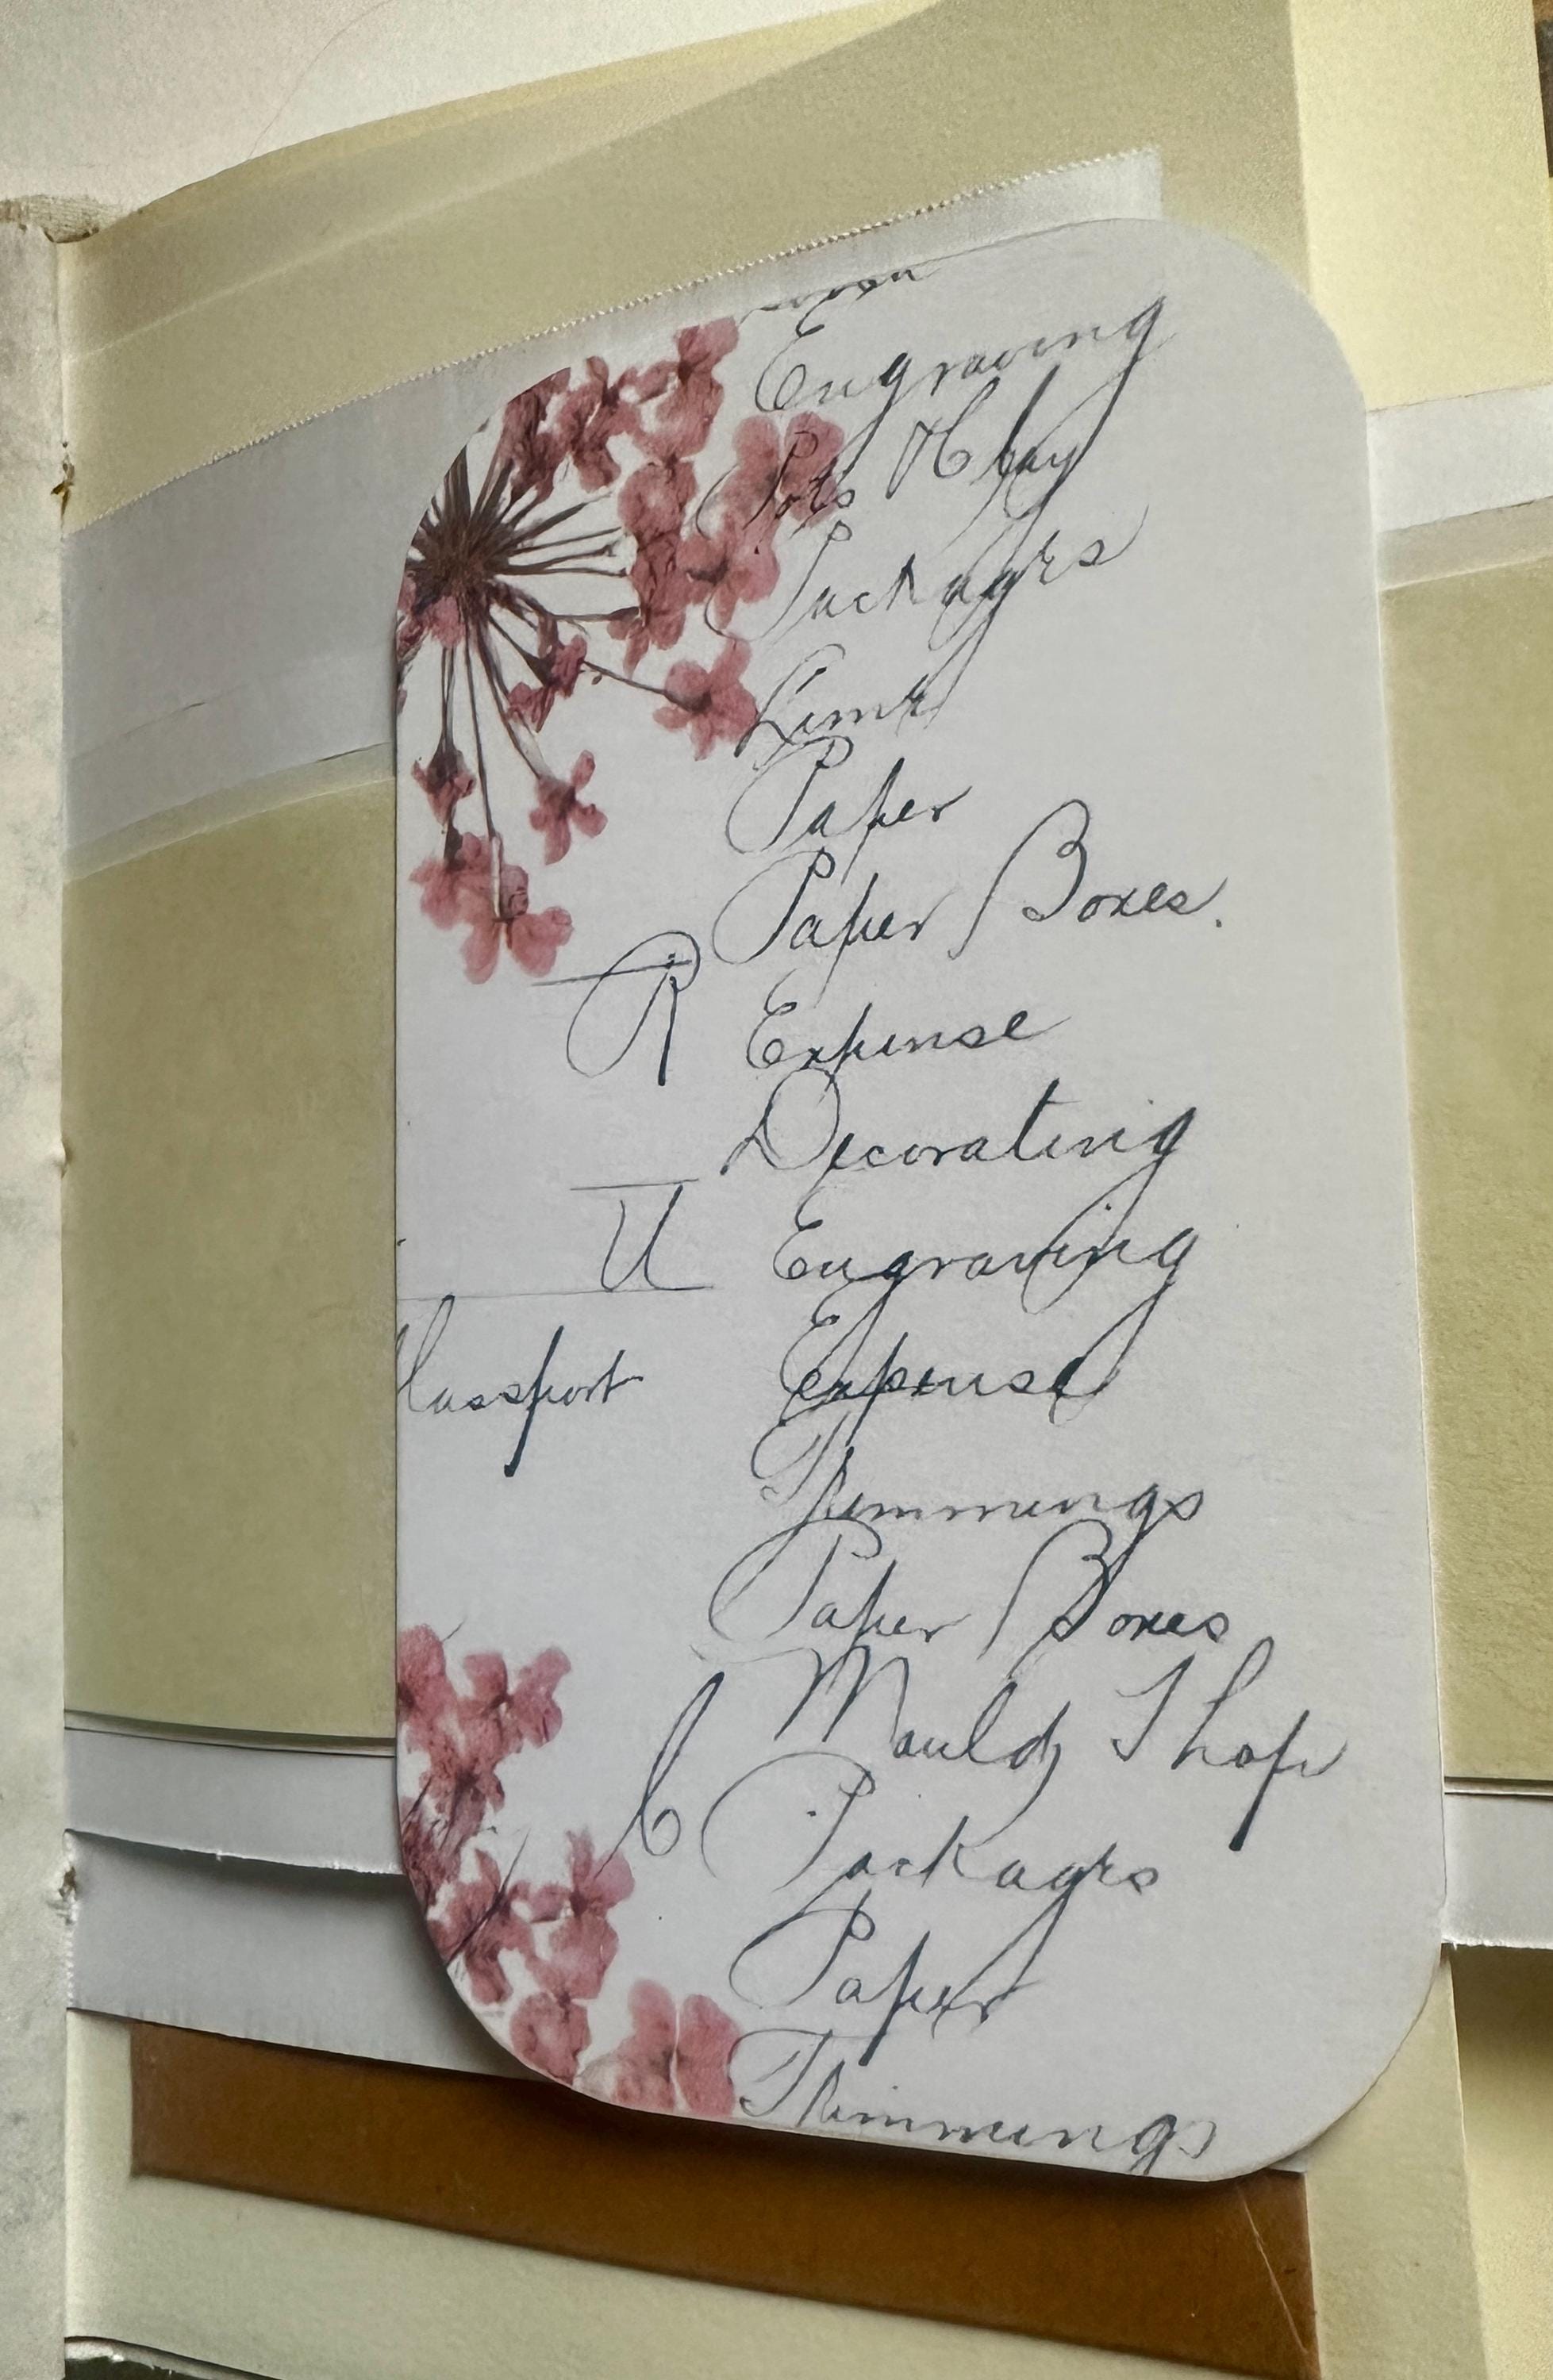 Engraving
Pots & Clay
Packages
Lime
Paper
Paper Boxes.
R Expense
Decorating
U Engraving
Glassport Expense
Trimmings
Paper Boxes
Mould Shop
6 Packages
Paper
Trimmings